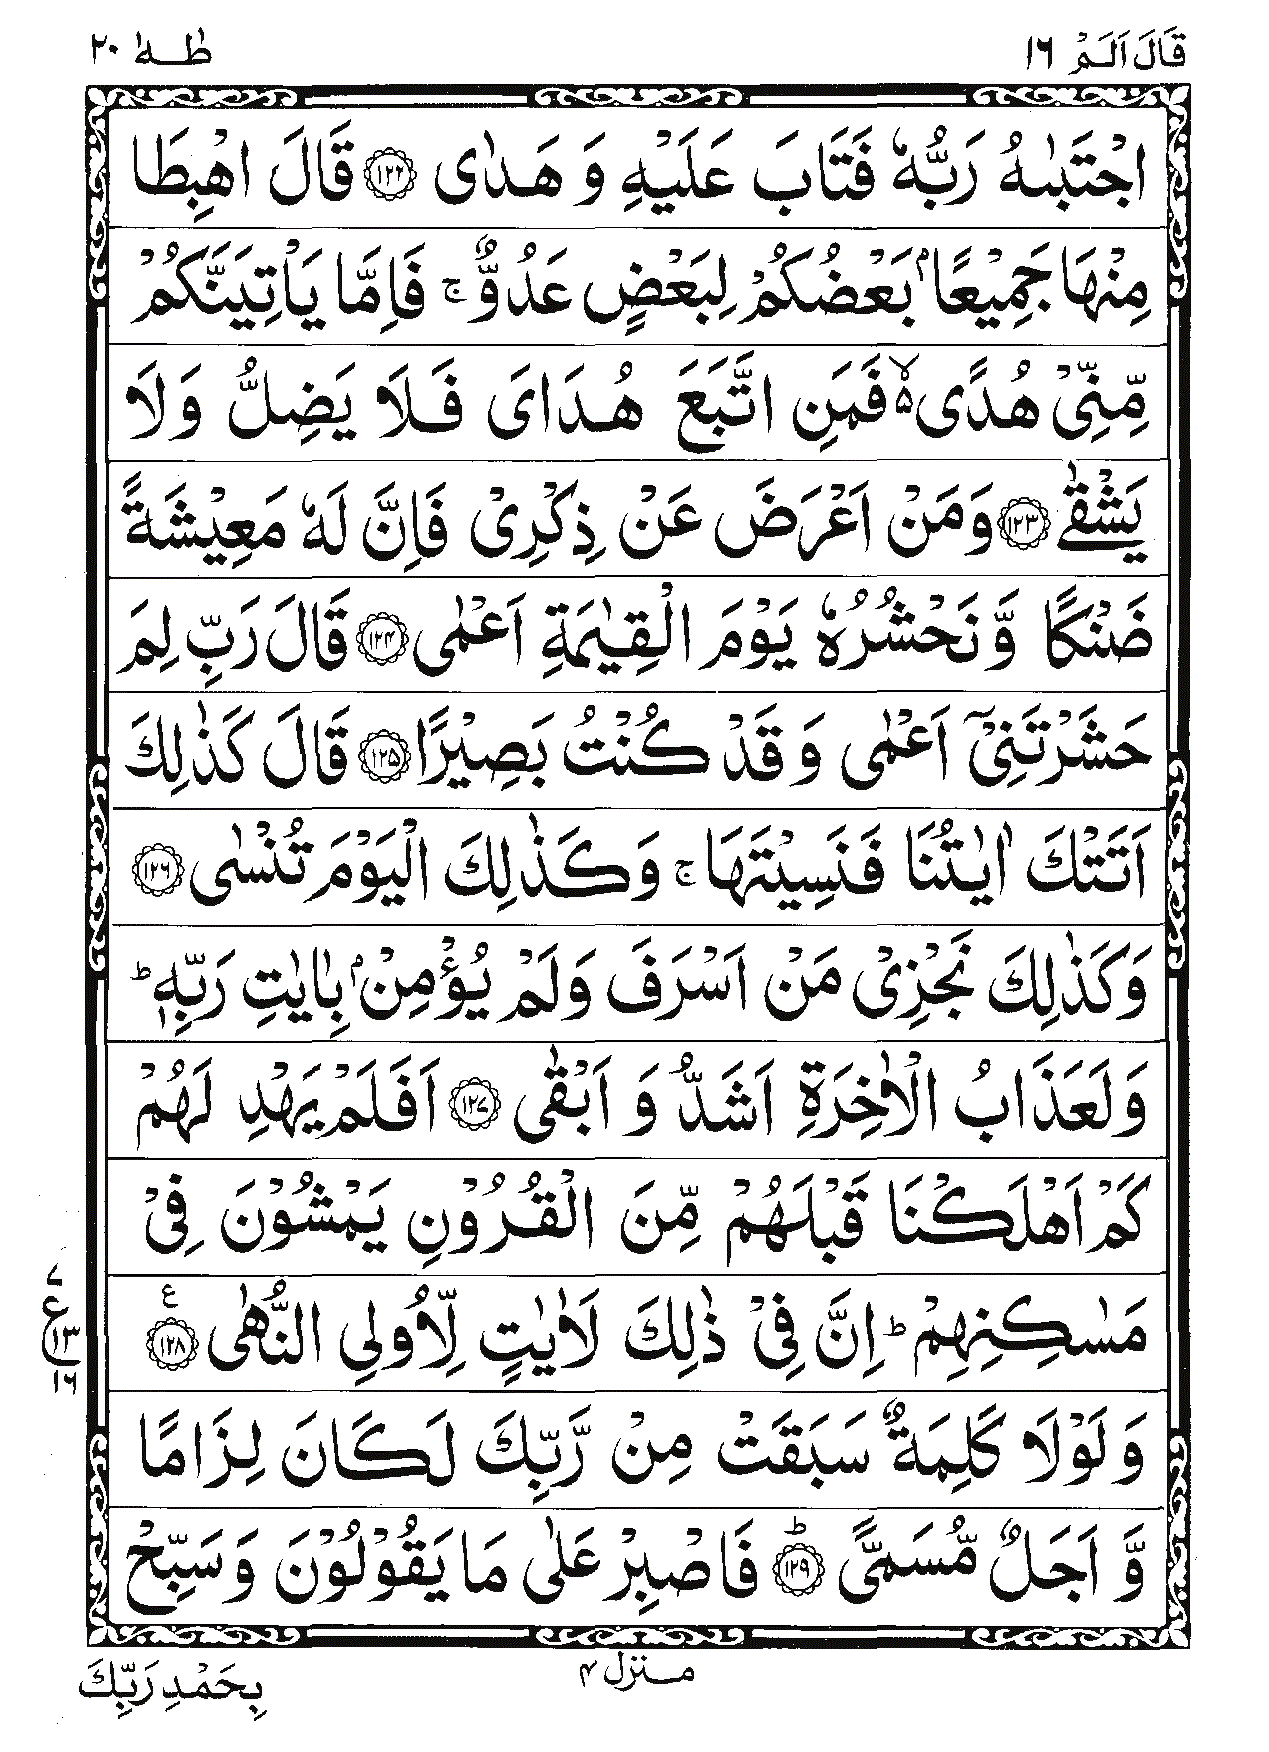 قَالَ اَلَمْ ١٦ طٰهٰ ٢٠
اجْتَبٰىهُ رَبُّهٗ فَتَابَ عَلَيْهِ وَ هَدٰى ﴿١٢٢﴾ قَالَ اهْبِطَا
مِنْهَا جَمِيْعًۢا بَعْضُكُمْ لِبَعْضٍ عَدُوٌّ ۚ فَاِمَّا يَاْتِيَنَّكُمْ
مِّنِّيْ هُدًى ۙ۬ فَمَنِ اتَّبَعَ هُدَايَ فَلَا يَضِلُّ وَلَا
يَشْقٰى ﴿١٢٣﴾ وَمَنْ اَعْرَضَ عَنْ ذِكْرِيْ فَاِنَّ لَهٗ مَعِيْشَةً
ضَنْكًا وَّ نَحْشُرُهٗ يَوْمَ الْقِيٰمَةِ اَعْمٰى ﴿١٢٤﴾ قَالَ رَبِّ لِمَ
حَشَرْتَنِيْٓ اَعْمٰى وَ قَدْ كُنْتُ بَصِيْرًا ﴿١٢٥﴾ قَالَ كَذٰلِكَ
اَتَتْكَ اٰيٰتُنَا فَنَسِيْتَهَا ۚ وَكَذٰلِكَ الْيَوْمَ تُنْسٰى ﴿١٢٦﴾
وَكَذٰلِكَ نَجْزِيْ مَنْ اَسْرَفَ وَلَمْ يُؤْمِنْۢ بِاٰيٰتِ رَبِّهٖ ؕ
وَلَعَذَابُ الْاٰخِرَةِ اَشَدُّ وَ اَبْقٰى ﴿١٢٧﴾ اَفَلَمْ يَهْدِ لَهُمْ
كَمْ اَهْلَكْنَا قَبْلَهُمْ مِّنَ الْقُرُوْنِ يَمْشُوْنَ فِيْ
مَسٰكِنِهِمْ ؕ اِنَّ فِيْ ذٰلِكَ لَاٰيٰتٍ لِّاُولِي النُّهٰى ﴿١٢٨﴾ ع
٧ ع ١٣ ١٦
وَ لَوْلَا كَلِمَةٌ سَبَقَتْ مِنْ رَّبِّكَ لَكَانَ لِزَامًا
وَّ اَجَلٌ مُّسَمًّى ﴿١٢٩﴾ ؕ فَاصْبِرْ عَلٰى مَا يَقُوْلُوْنَ وَسَبِّحْ
منزل ٤
بِحَمْدِ رَبِّكَ